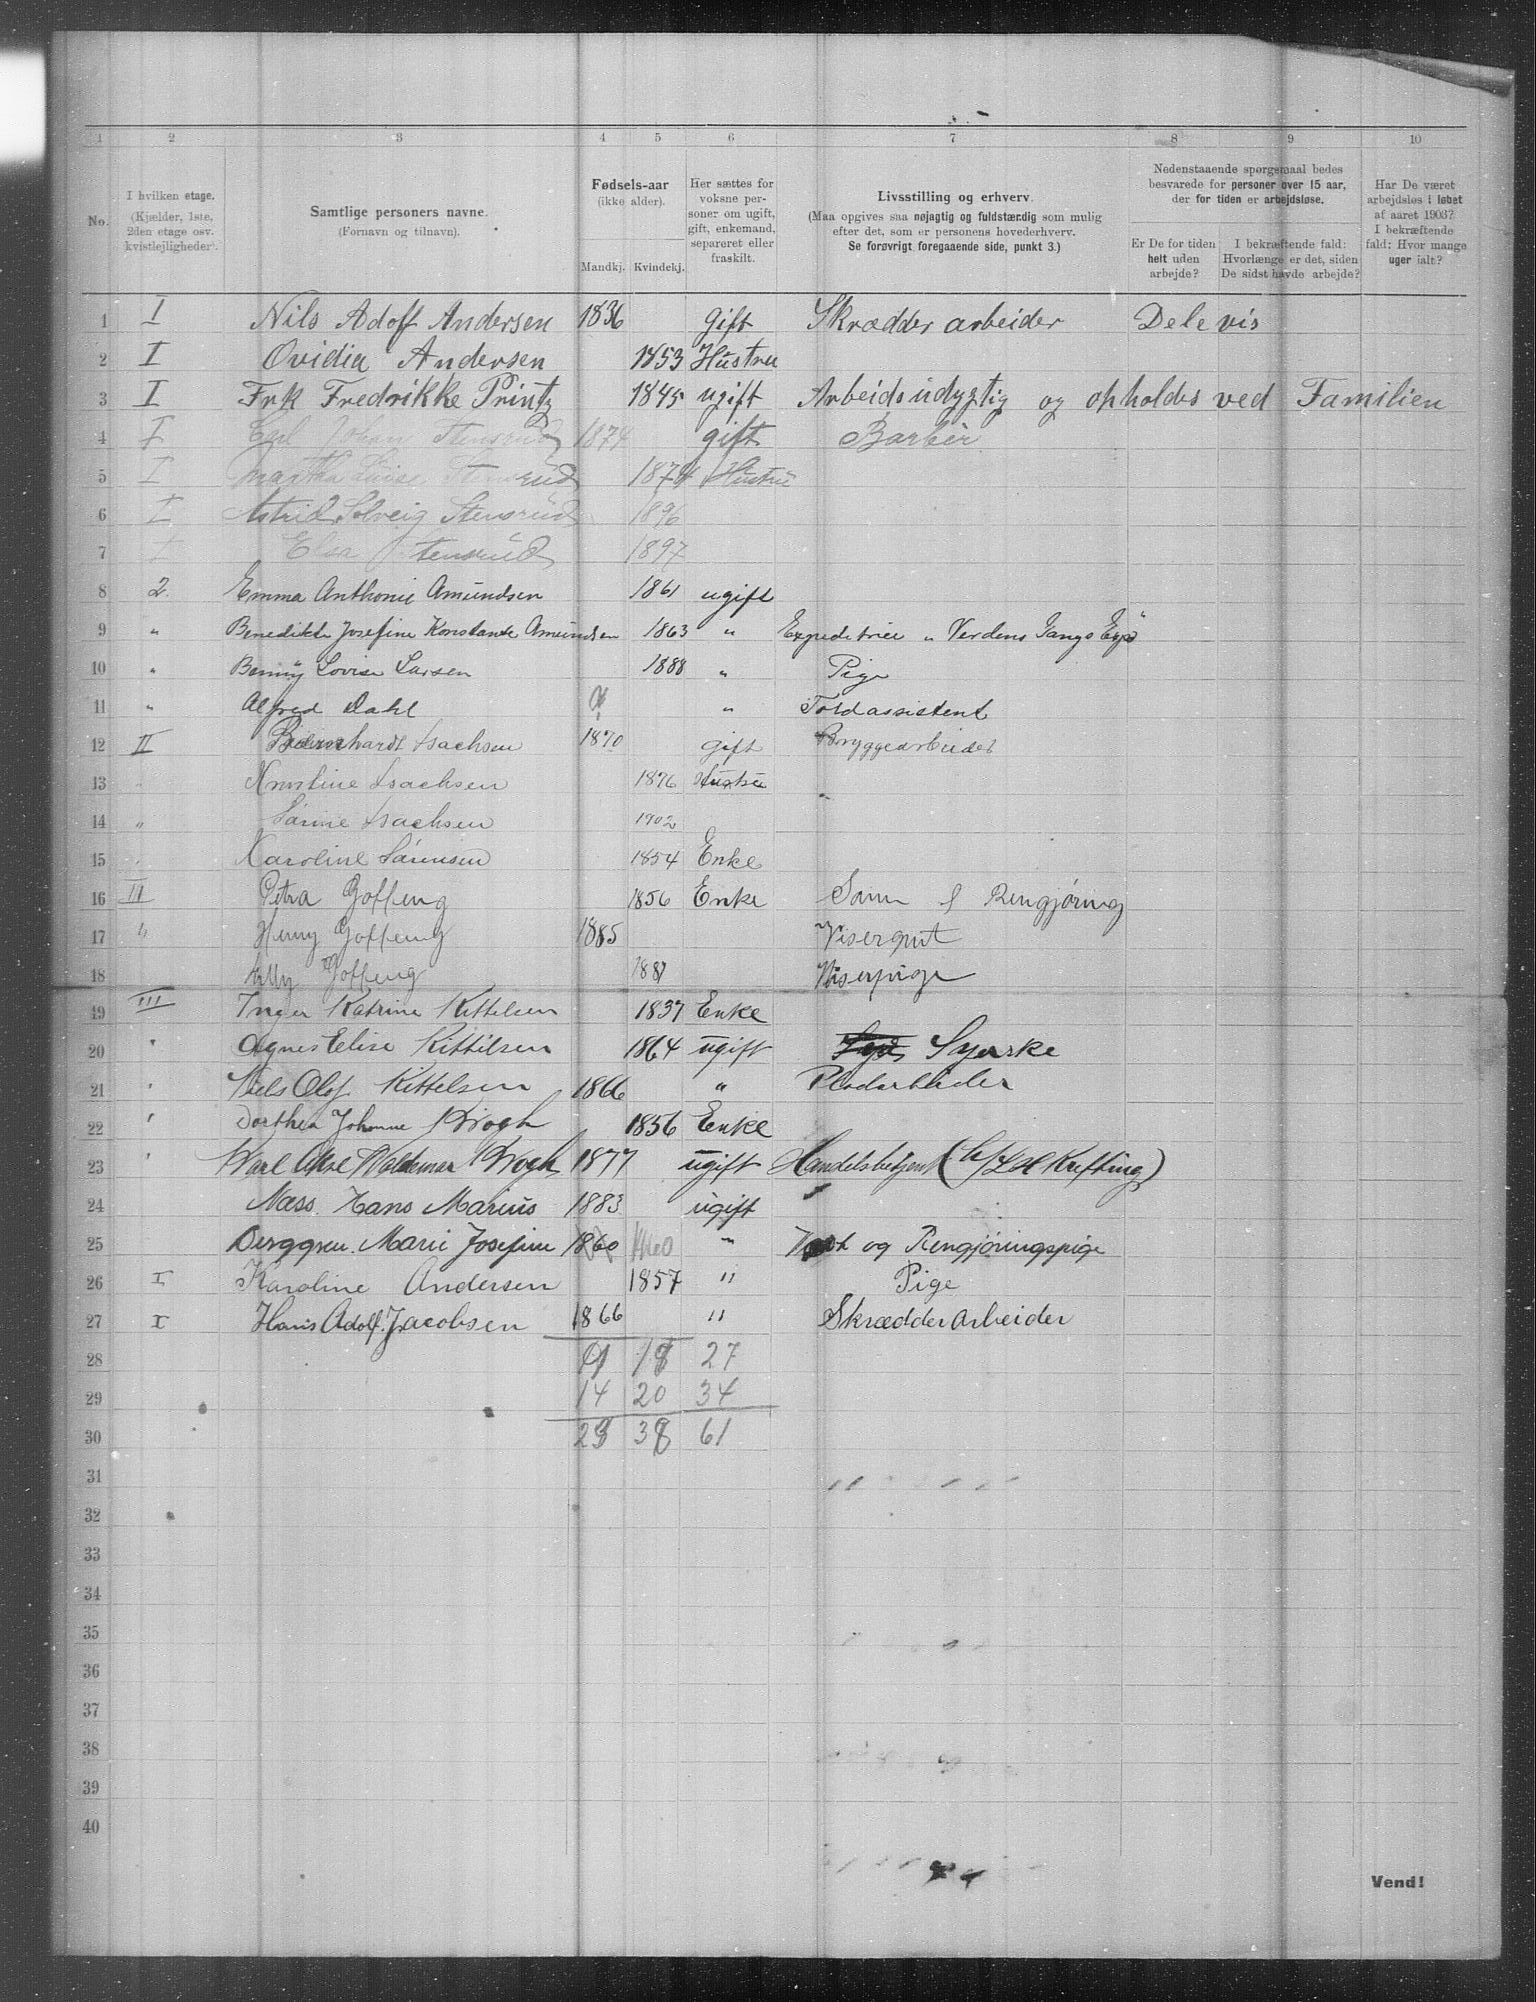 1 2 3 4 5 6 7 8 9 10
No.
I hvilken etage.
(Kjælder, 1ste,
2den etage osv.
kvistlejligheder).
Samtlige personers navne.
(Fornavn og tilnavn).
Fødsels-aar
(ikke alder).
Mandkj. Kvindekj.
Her sættes for
voksne per-
soner om ugift,
gift, enkemand,
separeret eller
fraskilt.
Livsstilling og erhverv.
(Maa opgives saa nøjagtig og fuldstærdig som mulig
efter det, som er personens hovederhverv.
Se forøvrigt foregaaende side, punkt 3.)
Nedenstaaende spørgsmaal bedes
besvarede for personer over 15 aar,
der for tiden er arbejdsløse.
Er De for tiden
helt uden
arbejde?
I bekræftende fald:
Hvorlænge er det, siden
De sidst havde arbejde?
Har De været
arbejdsløs i løbet
af aaret 1903?
I bekræftende
fald: Hvor mange
uger ialt?
1 I Nils Adolf Andersen 1836 gift Skrædder arbeider Delevis
2 I Ovidia Andersen 1853 Hustru
3 I Frk Fredrikke Printz 1845 ugift Arbeidsudygtig og opholdes ved Familien
4 I Carl Johan Stensrud 1874 gift Barbér
5 I Martha Luise Stensrud 1874 Hustru
6 I Astrid Solveig Stensrud 1896
7 I Elsa Stensrud 1897
8 2. Emma Anthonie Amundsen 1861 ugift
9 " Benedikte Josefine Konstanse Amundsen 1863 " Expeditrice "Verdens Gangs Exp"
10 " Benny Lovise Larsen 1888 " Pige
11 " Alfred Dahl " Toldassistent
12 II Bernhardt Isachsen 1870 gift Bryggearbeider
13 " Kristine Isachsen 1876 Hustru
14 " Sanne Isachsen 1902
15 " Karoline Sørensen 1854 Enke
16 III Petra Goffeng 1856 Enke Søm & Rengjøring
17 " Henry Goffeng 1885 Visergut
18 Lilly Goffeng 1887 Viserpige
19 III Inger Katrine Kittelsen 1837 Enke
20 " Agnes Elise Kittilsen 1864 ugift Syerske
21 " Niels Olof Kittelsen 1866 " Pladarbeider
22 " Dorthea Johanne Krogh 1856 Enke
23 " Karl Aksel Waldemar Krogh 1877 ugift Handelsbetjent (A/S H Krefting)
24 Næss. Hans Marius 1883 ugift
25 Berggren. Marie Josefine 1860 1860 " Vask og Rengjøringspige
26 I Karoline Andersen 1857 " Pige
27 I Hans Adolf Jacobsen 1866 " Skrædder Arbeider
28 9 18 27
29 14 20 34
30 23 38 61
31
32
33
34
35
36
37
38
39
40
Vend!